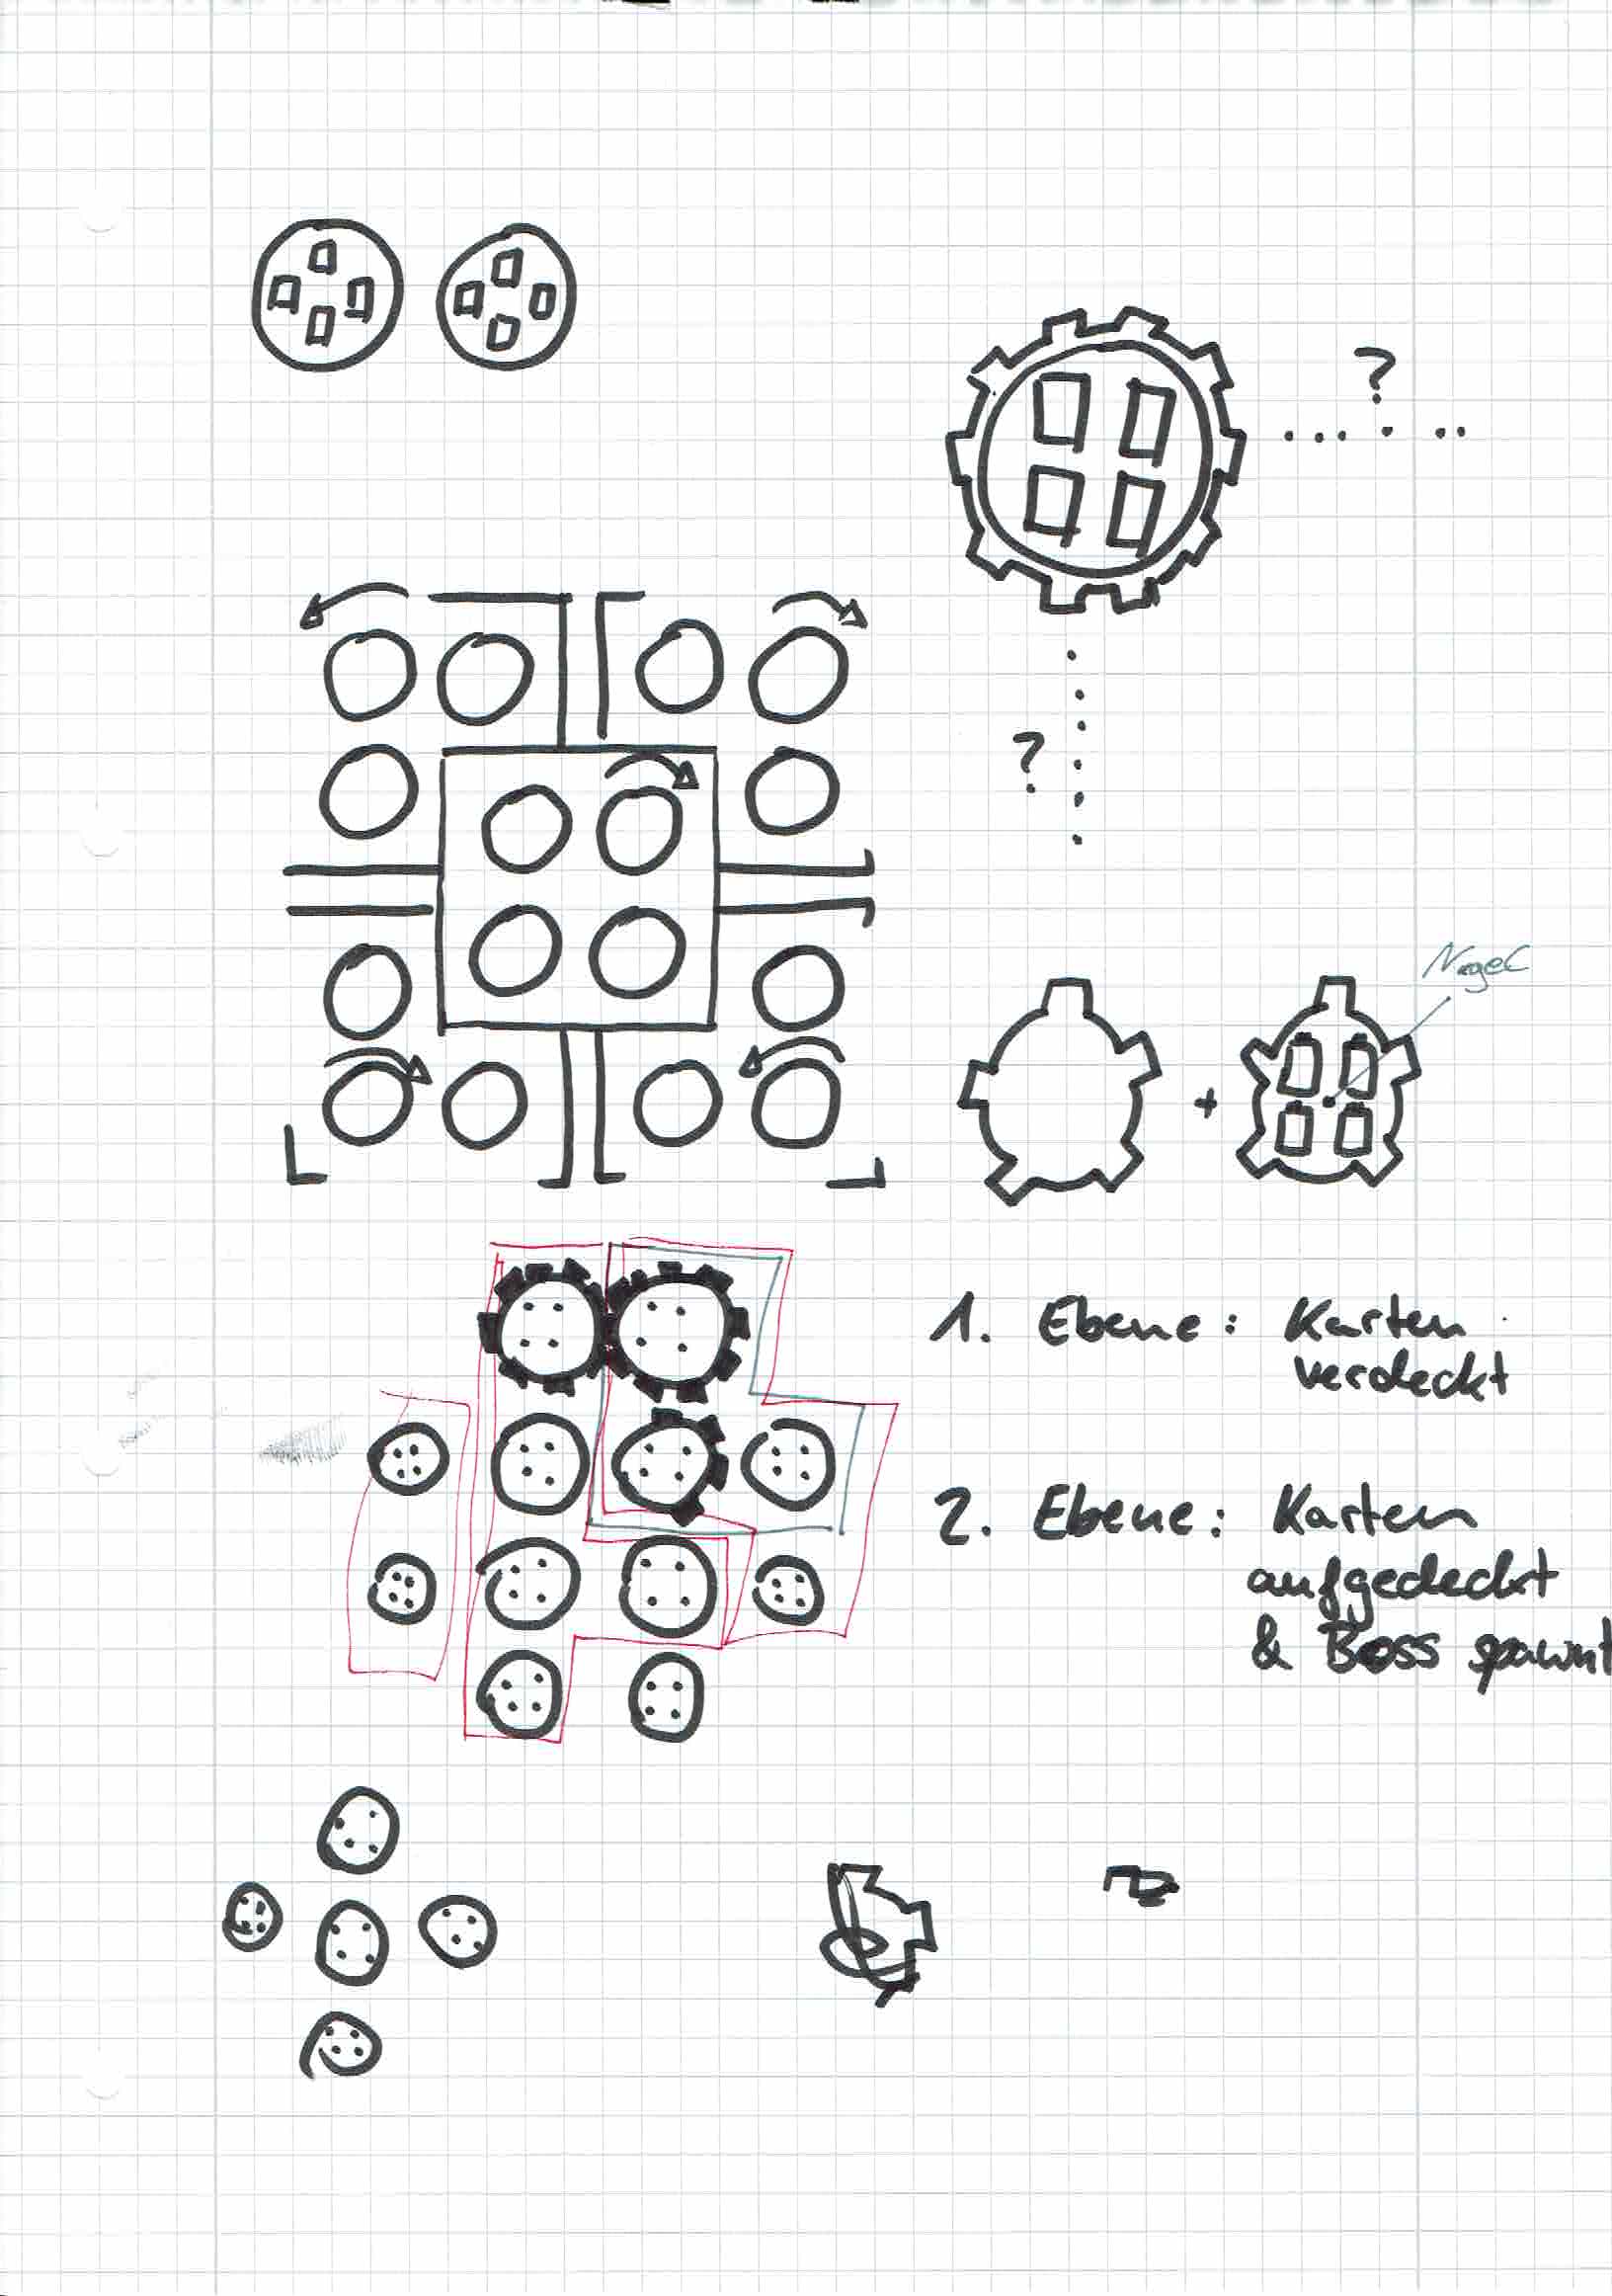 ?
?
Nagel
+
1. Ebene: Karten
verdeckt
2. Ebene: Karten
aufgedeckt
& Boss spawnt